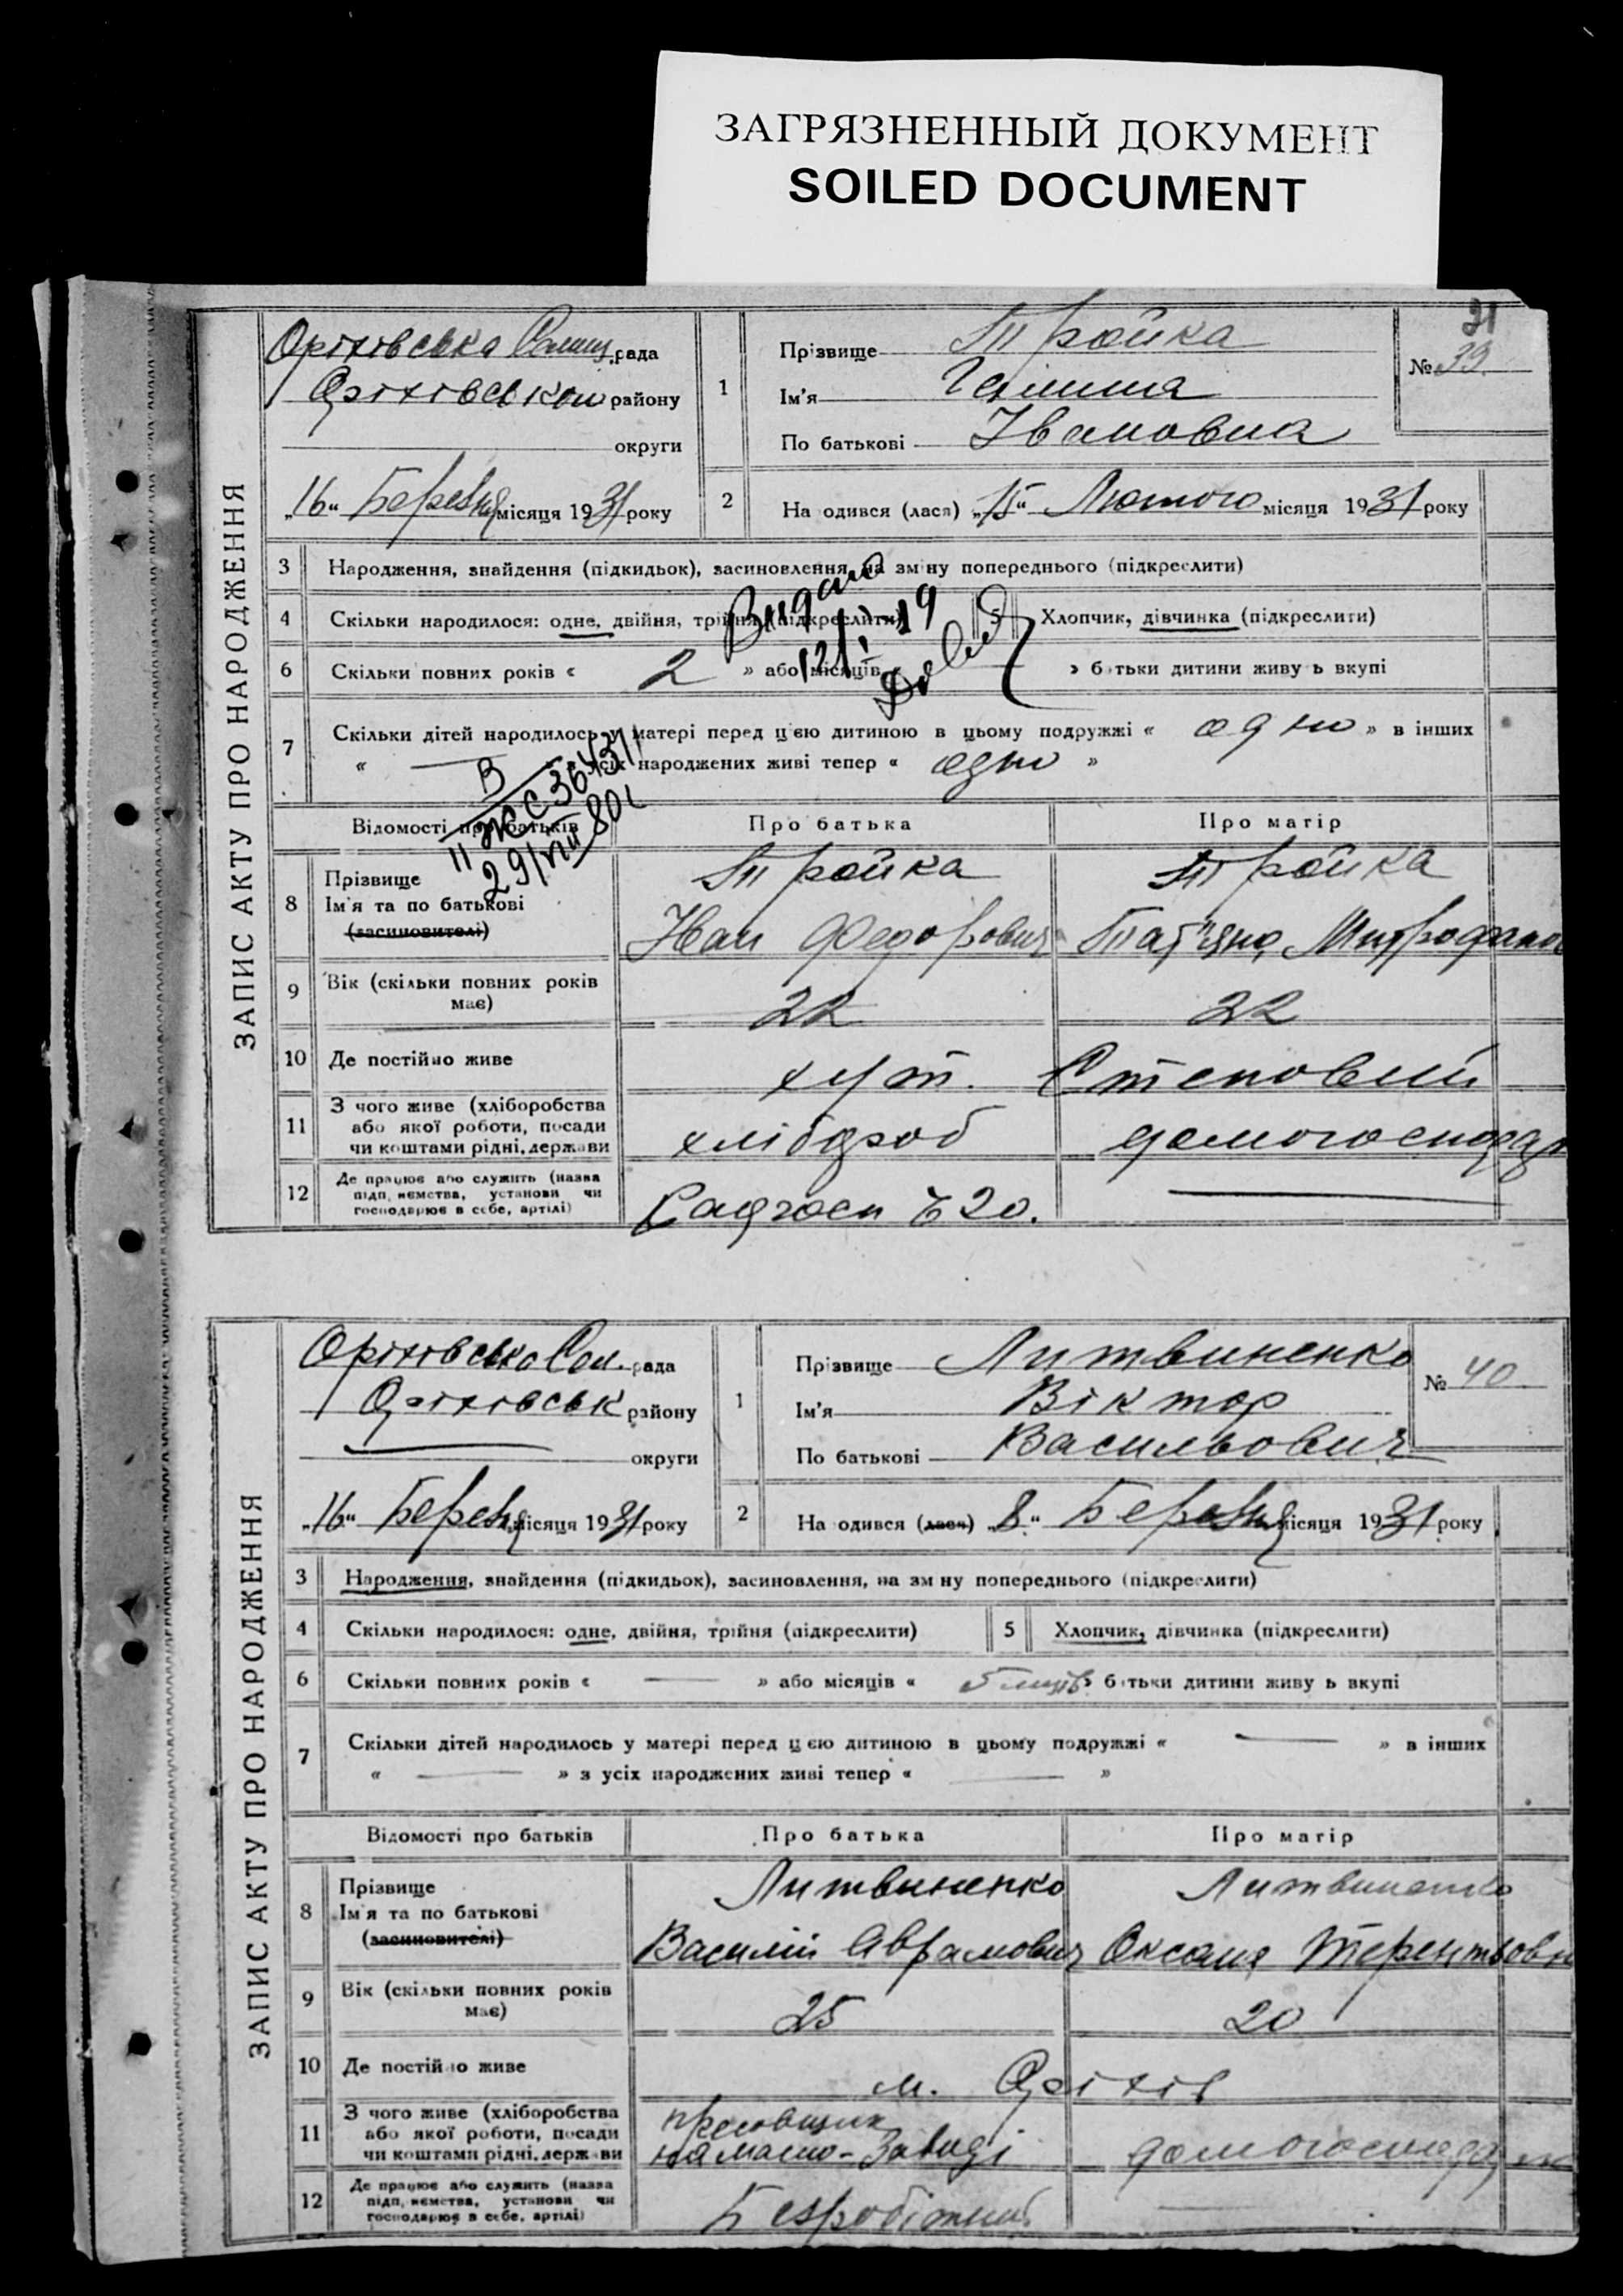 ЗАГРЯЗНЕННЫЙ ДОКУМЕНТ
SOILED DOCUMENT
31
ЗАПИС АКТУ ПРО НАРОДЖЕННЯ
Оріхівська рада
Оріхівськ району
округи
„16“ Березня місяця 1931 року
1
Прізвище Тройка
Ім'я Галина
По батькові Івановна
№ 39
2
На одився (лася) „15“ Лютого місяця 1931 року
3 Народження, знайдення (підкидьок), засиновлення, на зміну попереднього (підкреслити)
4 Скільки народилося: одне, двійня, трійня (підкреслити) 5 Хлопчик, дівчинка (підкреслити)
Видано
6 Скільки повних років « 2 » або місяців » б тьки дитини живу ь вкупі
7 Скільки дітей народилось у матері перед цією дитиною в цьому подружжі « одно » в інших
« — усіх народжених живі тепер « одно »
Відомості про батьків Про батька Про матір
8 Прізвище Тройка Тройка
Ім'я та по батькові Іван Федорович Тат'яна Митрофанов
(засиновителі)
9 Вік (скільки повних років має) 22 22
10 Де постійно живе хут. Степовий
11 З чого живе (хліборобства
або якої роботи, посади
чи коштами рідні, держави хлібороб домогосподар
12 Де працює або служить (назва
підп, иємства, установи чи
господарює в себе, артілі)
ЗАПИС АКТУ ПРО НАРОДЖЕННЯ
Оріхівська Сел. рада
Оріхівськ району
округи
„16“ Березня місяця 1931 року
1
Прізвище Литвиненко
Ім'я Віктор
По батькові Васильович
№ 40
2
На одився (лася) „8“ Березня місяця 1931 року
3 Народження, знайдення (підкидьок), засиновлення, на зм ну попереднього (підкреслити)
4 Скільки народилося: одне, двійня, трійня (підкреслити) 5 Хлопчик, дівчинка (підкреслити)
6 Скільки повних років « — » або місяців « » б тьки дитини живу ь вкупі
7 Скільки дітей народилось у матері перед цією дитиною в цьому подружжі « — » в інших
« — » з усіх народжених живі тепер « — »
Відомості про батьків Про батька Про матір
8 Прізвище Литвиненко Литвиненко
Ім'я та по батькові Василій Аврамович Оксана Терентьовн
(засиновителі)
9 Вік (скільки повних років має) 25 20
10 Де постійно живе м. Оріхів
11 З чого живе (хліборобства
або якої роботи, посади
чи коштами рідні, держ ви на масло-Заводі домогосподар
12 Де працює або служить (назва
підп, иємства, установи чи
господарює в себе, артілі) Безробітний